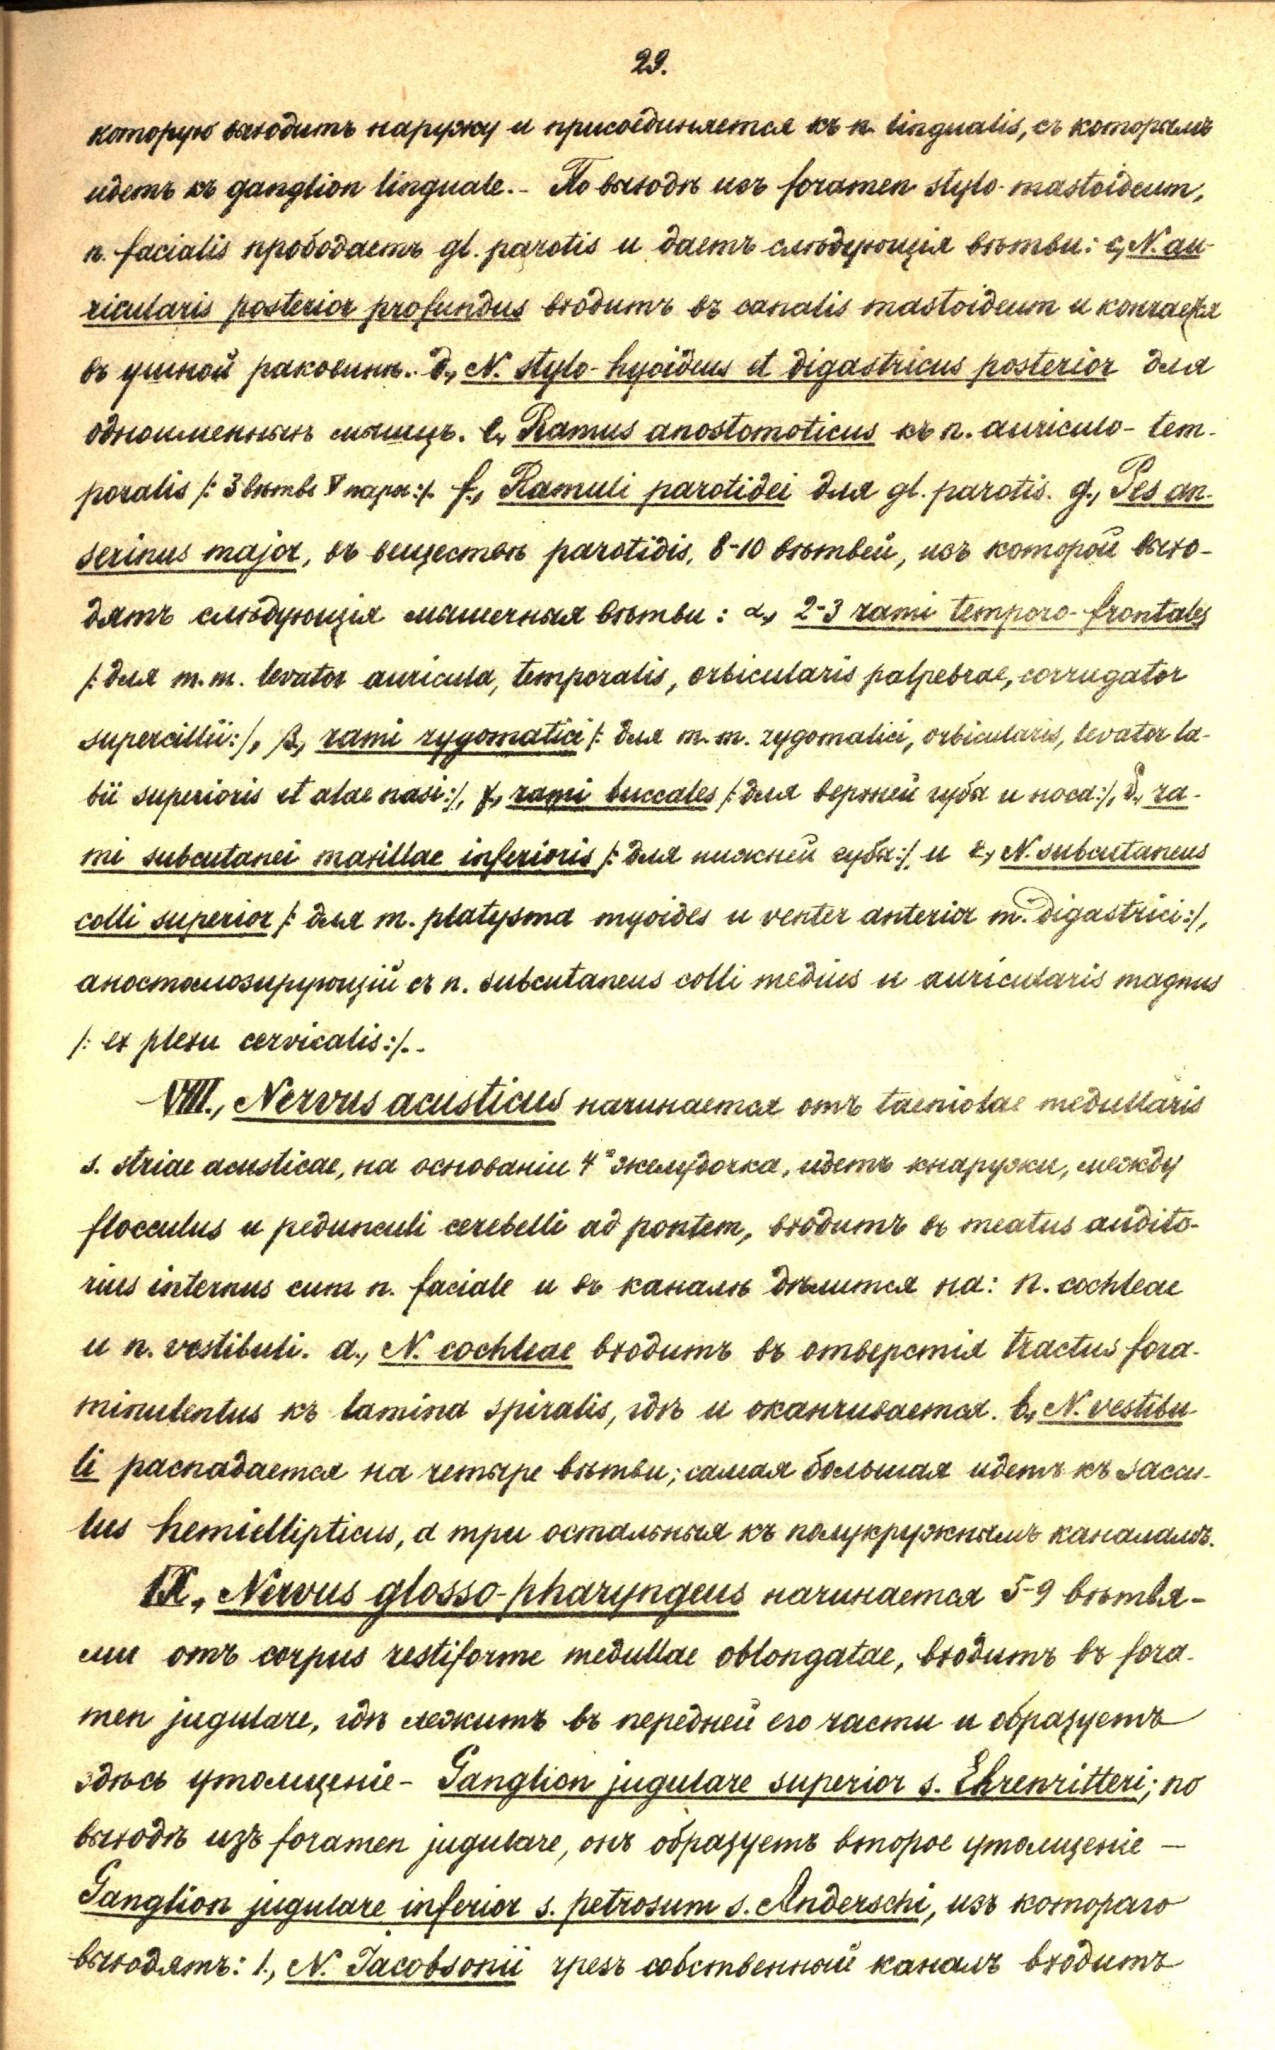 29.
которую выходитъ наружу и присоединяется къ n. lingualis, съ которымъ
идетъ къ ganglion linguale. - По выходѣ изъ foramen stylo-mastoideum,
n. facialis прободаетъ gl. parotis и даетъ слѣдующія вѣтви: c, N. au-
ricularis posterior profundus входитъ въ canalis mastoideum и кончается
въ ушной раковинѣ. d., N. stylo-hyoideus et digastricus posterior для
одноименныхъ мышцъ. e, Ramus anostomoticus къ n. auriculo-tem-
poralis /: 3 вѣтвь V пары :/. f., Ramuli parotidei для gl. parotis. g., Pes an-
serinus major, въ веществѣ parotidis, 8-10 вѣтвей, изъ которой выхо-
дятъ слѣдующія мышечныя вѣтви: α, 2-3 rami temporo-frontales
/: для m.m. levator auricula, temporalis, orbicularis palpebrae, corrugator
supercillii :/, β, rami zygomatici /: для m.m. zygomatici, orbicularis, levator la-
bii superioris et alae nasi :/, γ, rami buccales /: для верхней губы и носа :/, δ, ra-
mi subcutanei maxillae inferioris /: для нижней губы :/ и ε, N. subcutaneus
colli superior /: для m. platysma myoides и venter anterior m. digastrici :/,
аностомозирующій съ n. subcutaneus colli medius и auricularis magnus
/: ex plexu cervicalis :/. -
VIII., Nervus acusticus начинается отъ taeniolae medullaris
s. striae acusticae, на основаніи 4го желудочка, идетъ кнаружи, между
flocculus и pedunculi cerebelli ad pontem, входитъ въ meatus audito-
rius internus cum n. faciale и въ каналѣ дѣлится на: n. cochleae
и n. vestibuli. a., N. cochleae входитъ въ отверстія tractus fora-
minulentus къ lamina spiralis, гдѣ и оканчивается. b., N. vestibu
li распадается на четыре вѣтви; самая большая идетъ къ saccu-
lus hemiellipticus, а три остальныя къ полукружнымъ каналамъ.
IX., Nervus glosso-pharyngeus начинается 5-9 вѣтвя-
ми отъ corpus restiforme medullae oblongatae, входитъ въ fora-
men jugulare, гдѣ лежитъ въ передней его части и образуетъ
здѣсь утолщеніе - Ganglion jugulare superior s. Ehrenritteri; по
выходѣ изъ foramen jugulare, онъ образуетъ второе утолщеніе —
Ganglion jugulare inferior s. petrosum s. Anderschi, изъ котораго
выходятъ: 1., N. Jacobsonii чрезъ собственный каналъ входитъ